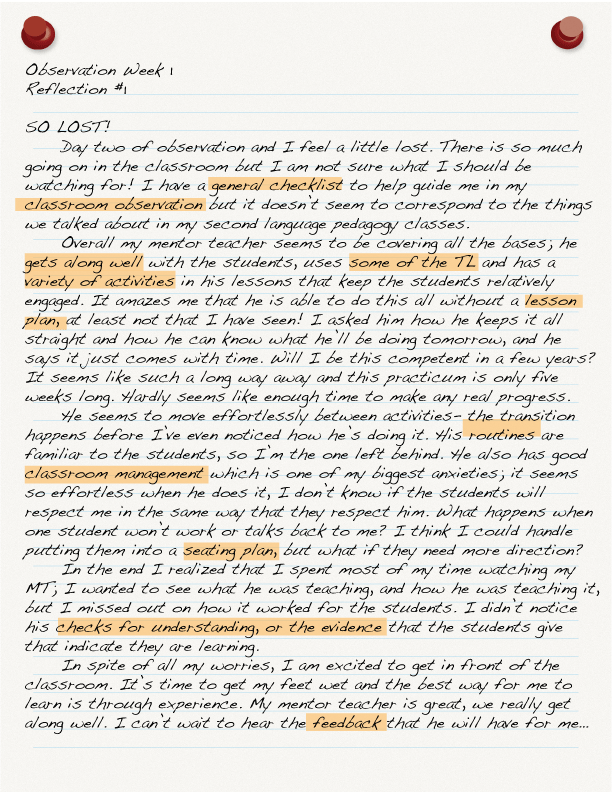 Observation Week 1
Reflection #1
SO LOST!
Day two of observation and I feel a little lost. There is so much
going on in the classroom but I am not sure what I should be
watching for! I have a general checklist to help guide me in my
classroom observation but it doesn't seem to correspond to the things
we talked about in my second language pedagogy classes.
Overall my mentor teacher seems to be covering all the bases; he
gets along well with the students, uses some of the TL and has a
variety of activities in his lessons that keep the students relatively
engaged. It amazes me that he is able to do this all without a lesson
plan, at least not that I have seen! I asked him how he keeps it all
straight and how he can know what he'll be doing tomorrow, and he
says it just comes with time. Will I be this competent in a few years?
It seems like such a long way away and this practicum is only five
weeks long. Hardly seems like enough time to make any real progress.
He seems to move effortlessly between activities- the transition
happens before I've even noticed how he's doing it. His routines are
familiar to the students, so I'm the one left behind. He also has good
classroom management which is one of my biggest anxieties; it seems
so effortless when he does it, I don't know if the students will
respect me in the same way that they respect him. What happens when
one student won't work or talks back to me? I think I could handle
putting them into a seating plan, but what if they need more direction?
In the end I realized that I spent most of my time watching my
MT; I wanted to see what he was teaching, and how he was teaching it,
but I missed out on how it worked for the students. I didn't notice
his checks for understanding, or the evidence that the students give
that indicate they are learning.
In spite of all my worries, I am excited to get in front of the
classroom. It's time to get my feet wet and the best way for me to
learn is through experience. My mentor teacher is great, we really get
along well. I can't wait to hear the feedback that he will have for me...